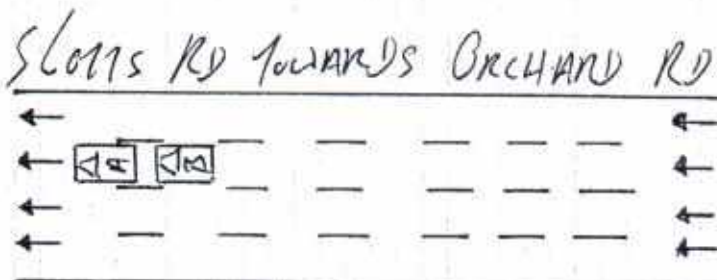 Scotts RD TOWARDS ORCHARD RD
A B